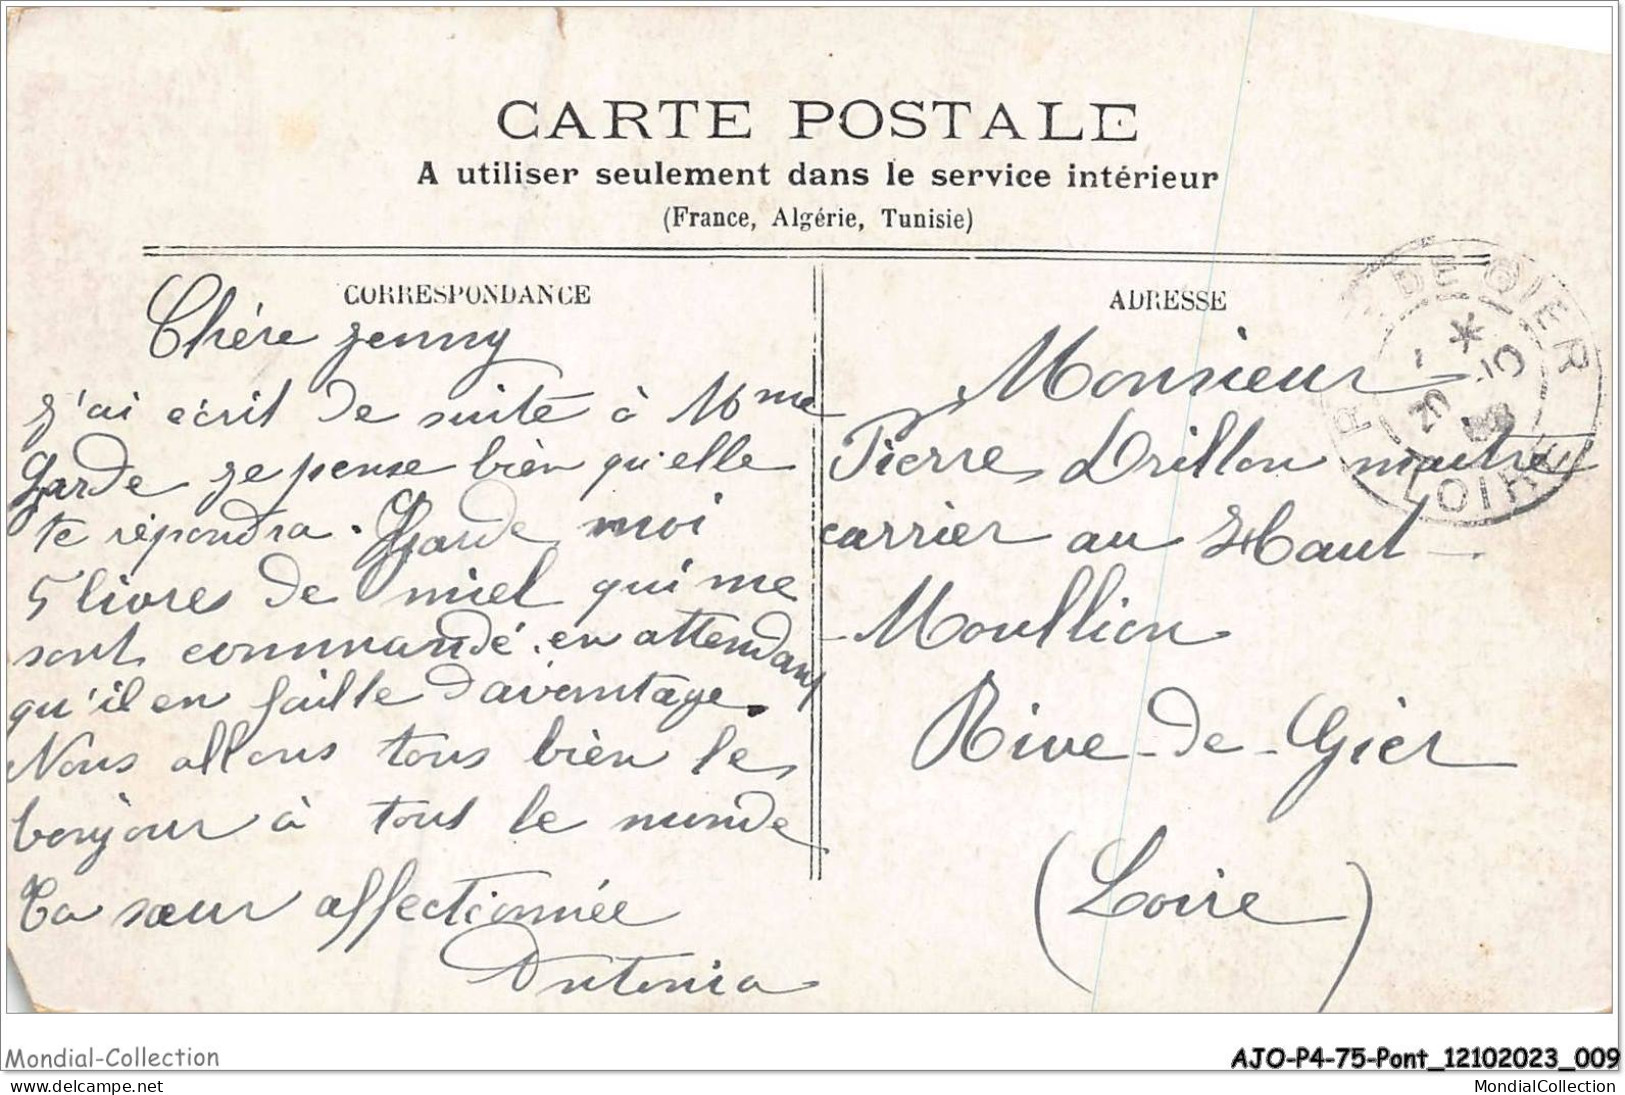 CARTE POSTALE
A utiliser seulement dans le service intérieur
(France, Algérie, Tunisie)
CORRESPONDANCE
Chére Jenny
J'ai écrit de suite à Mme
Garde je pense bien qu'elle
te répondra. Garde moi
5 livres de miel qui me
sont commandé. en attendant
qu'il en faille d'avantage.
Nous allons tous bien le
bonjour à tout le monde
Ta sœur affectionnée
Antonia
ADRESSE
Monsieur
Pierre Drillon maitre
carrier au Haut
Moullion
Rive-de-Gier
(Loire)
DE GIER
LOIRE
Mondial-Collection
AJO-P4-75-Pont_12102023_009
www.delcampe.net
MondialCollection